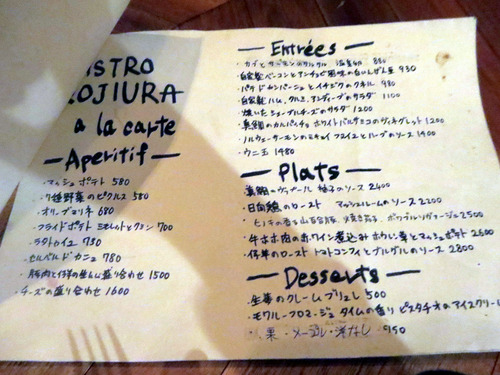 ISTRO
ROJIURA
a la carte
Aperitif
・マッシュポテト 580
・7種野菜のピクルス 580
・オリーブマリネ 680
・フライドポテト 700
・ラタトゥイユ 730
・セルベルドカニュ 780
・豚肉と仔羊の 盛り合わせ 1500
・チーズの盛り合わせ 1600
Entrées
・カブとサーモンの 温玉 880
・自家製ベーコンとアンチョビ風味の白いんげん豆 930
・パクとイチジクの 980
・自家製ハム、クルミ、アンディーブのサラダ 1100
・焼いたシェーブルチーズのサラダ 1200
・真鯛のカルパッチョ ホワイトバルサミコのヴィネグレット 1200
・ノルウェーサーモンのミキュイ フヌイユとハーブのソース 1400
・ウニ 1480
Plats
真鯛のヴァプール 柚子のソース 2400
・日向鶏のロースト マッシュルームのソース 2200
・ヒノキの香る 2500
・牛ホホ肉の赤ワイン煮込み ホウレン草とマッシュポテト 2600
・仔羊のロースト トマトコンフィとブルグルのソース 2800
Desserts
・生姜のクレームブリュレ 500
・モワルーフロマージュ タイムの香り ピスタチオのアイスクリー
・栗・メープル・洋なし 950